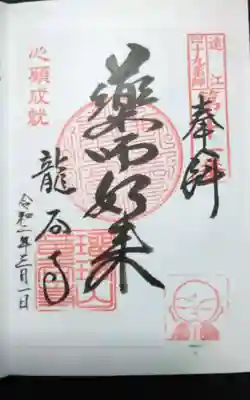 奉拝
遠江
四十九薬師
薬師如来
心願成就
龍石寺
令和二年三月一日